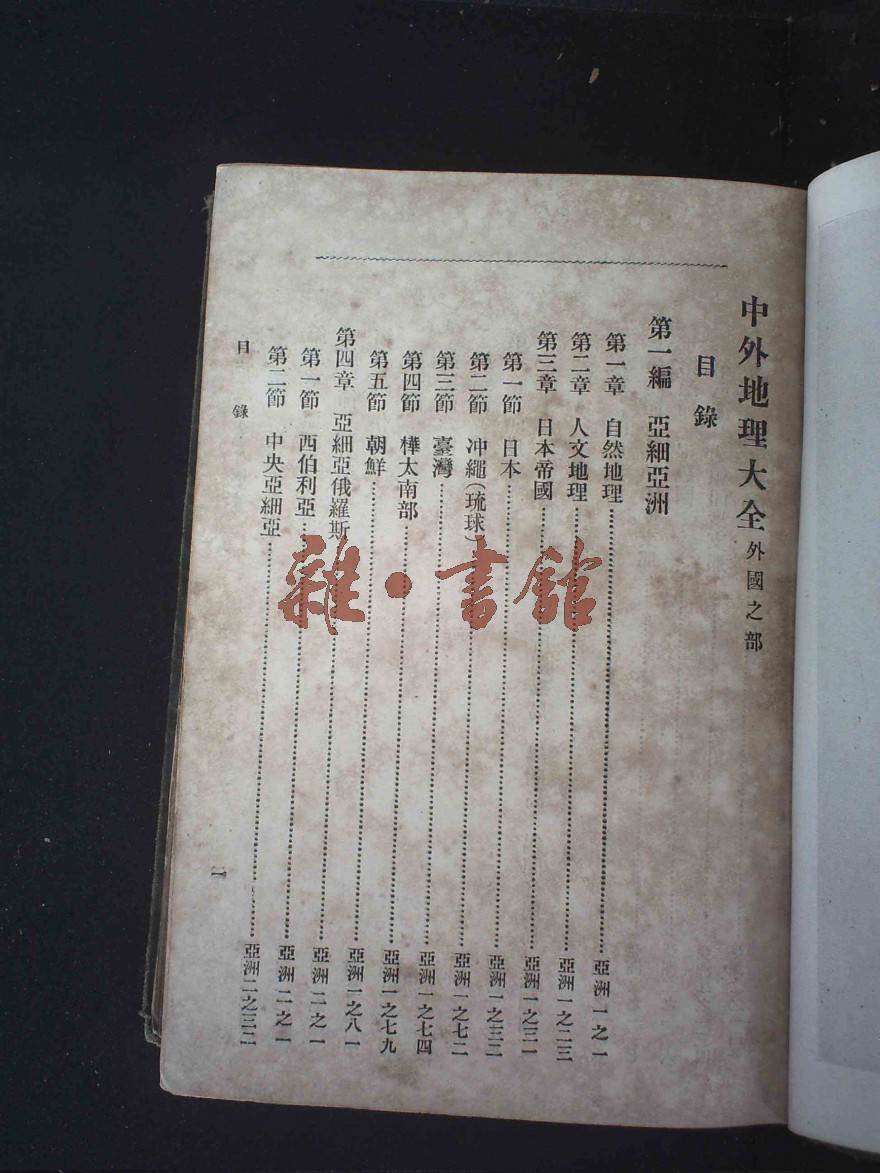 中外地理大全外國之部
目錄
第一編 亞細亞洲
第一章 自然地理……亞洲一之一
第二章 人文地理……亞洲一之二三
第三章 日本帝國……亞洲一之三一
第一節 日本……亞洲一之三二
第二節 冲繩(琉球)……亞洲一之七二
第三節 臺灣……亞洲一之七四
第四節 樺太南部……亞洲一之七九
第五節 朝鮮……亞洲一之八一
第四章 亞細亞俄羅斯……亞洲二之一
第一節 西伯利亞……亞洲二之一
第二節 中央亞細亞……亞洲二之三二
目錄
一
雜·書館